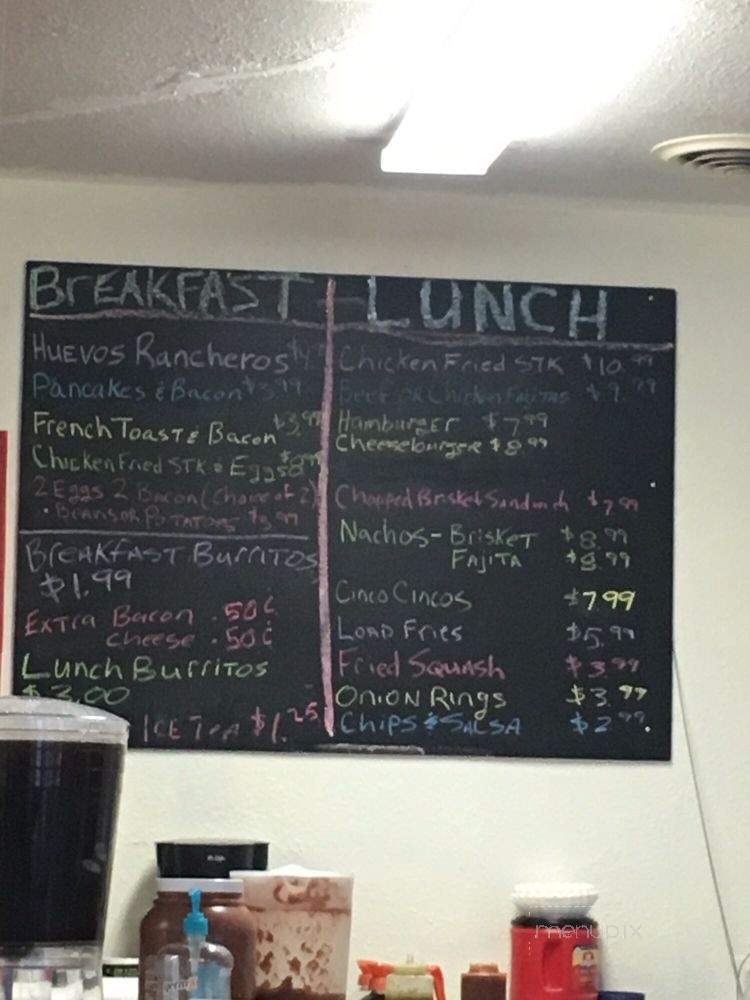 BREAKFAST
HUEVOS Rancheros
Pancakes & Bacon $3.99
French Toast & Bacon $3.99
Chicken Fried STK & Eggs
2 Eggs 2 Bacon (Choice of 2)
• Beans or Potatoes $3.99
Breakfast Burritos
$1.99
Extra Bacon .50¢
cheese .50¢
Lunch Burritos
$3.00
ICE Tea $1.25
LUNCH
Chicken Fried STK $10.99
Beef or Chicken Fajitas $9.99
Hamburger $7.99
Cheeseburger $8.99
Chopped Brisket Sandwich $7.99
Nachos - Brisket $8.99
Fajita $8.99
Cinco Cincos $7.99
Load Fries $5.99
Fried Squash $3.99
Onion Rings $3.99
Chips & Salsa $2.99
menupix